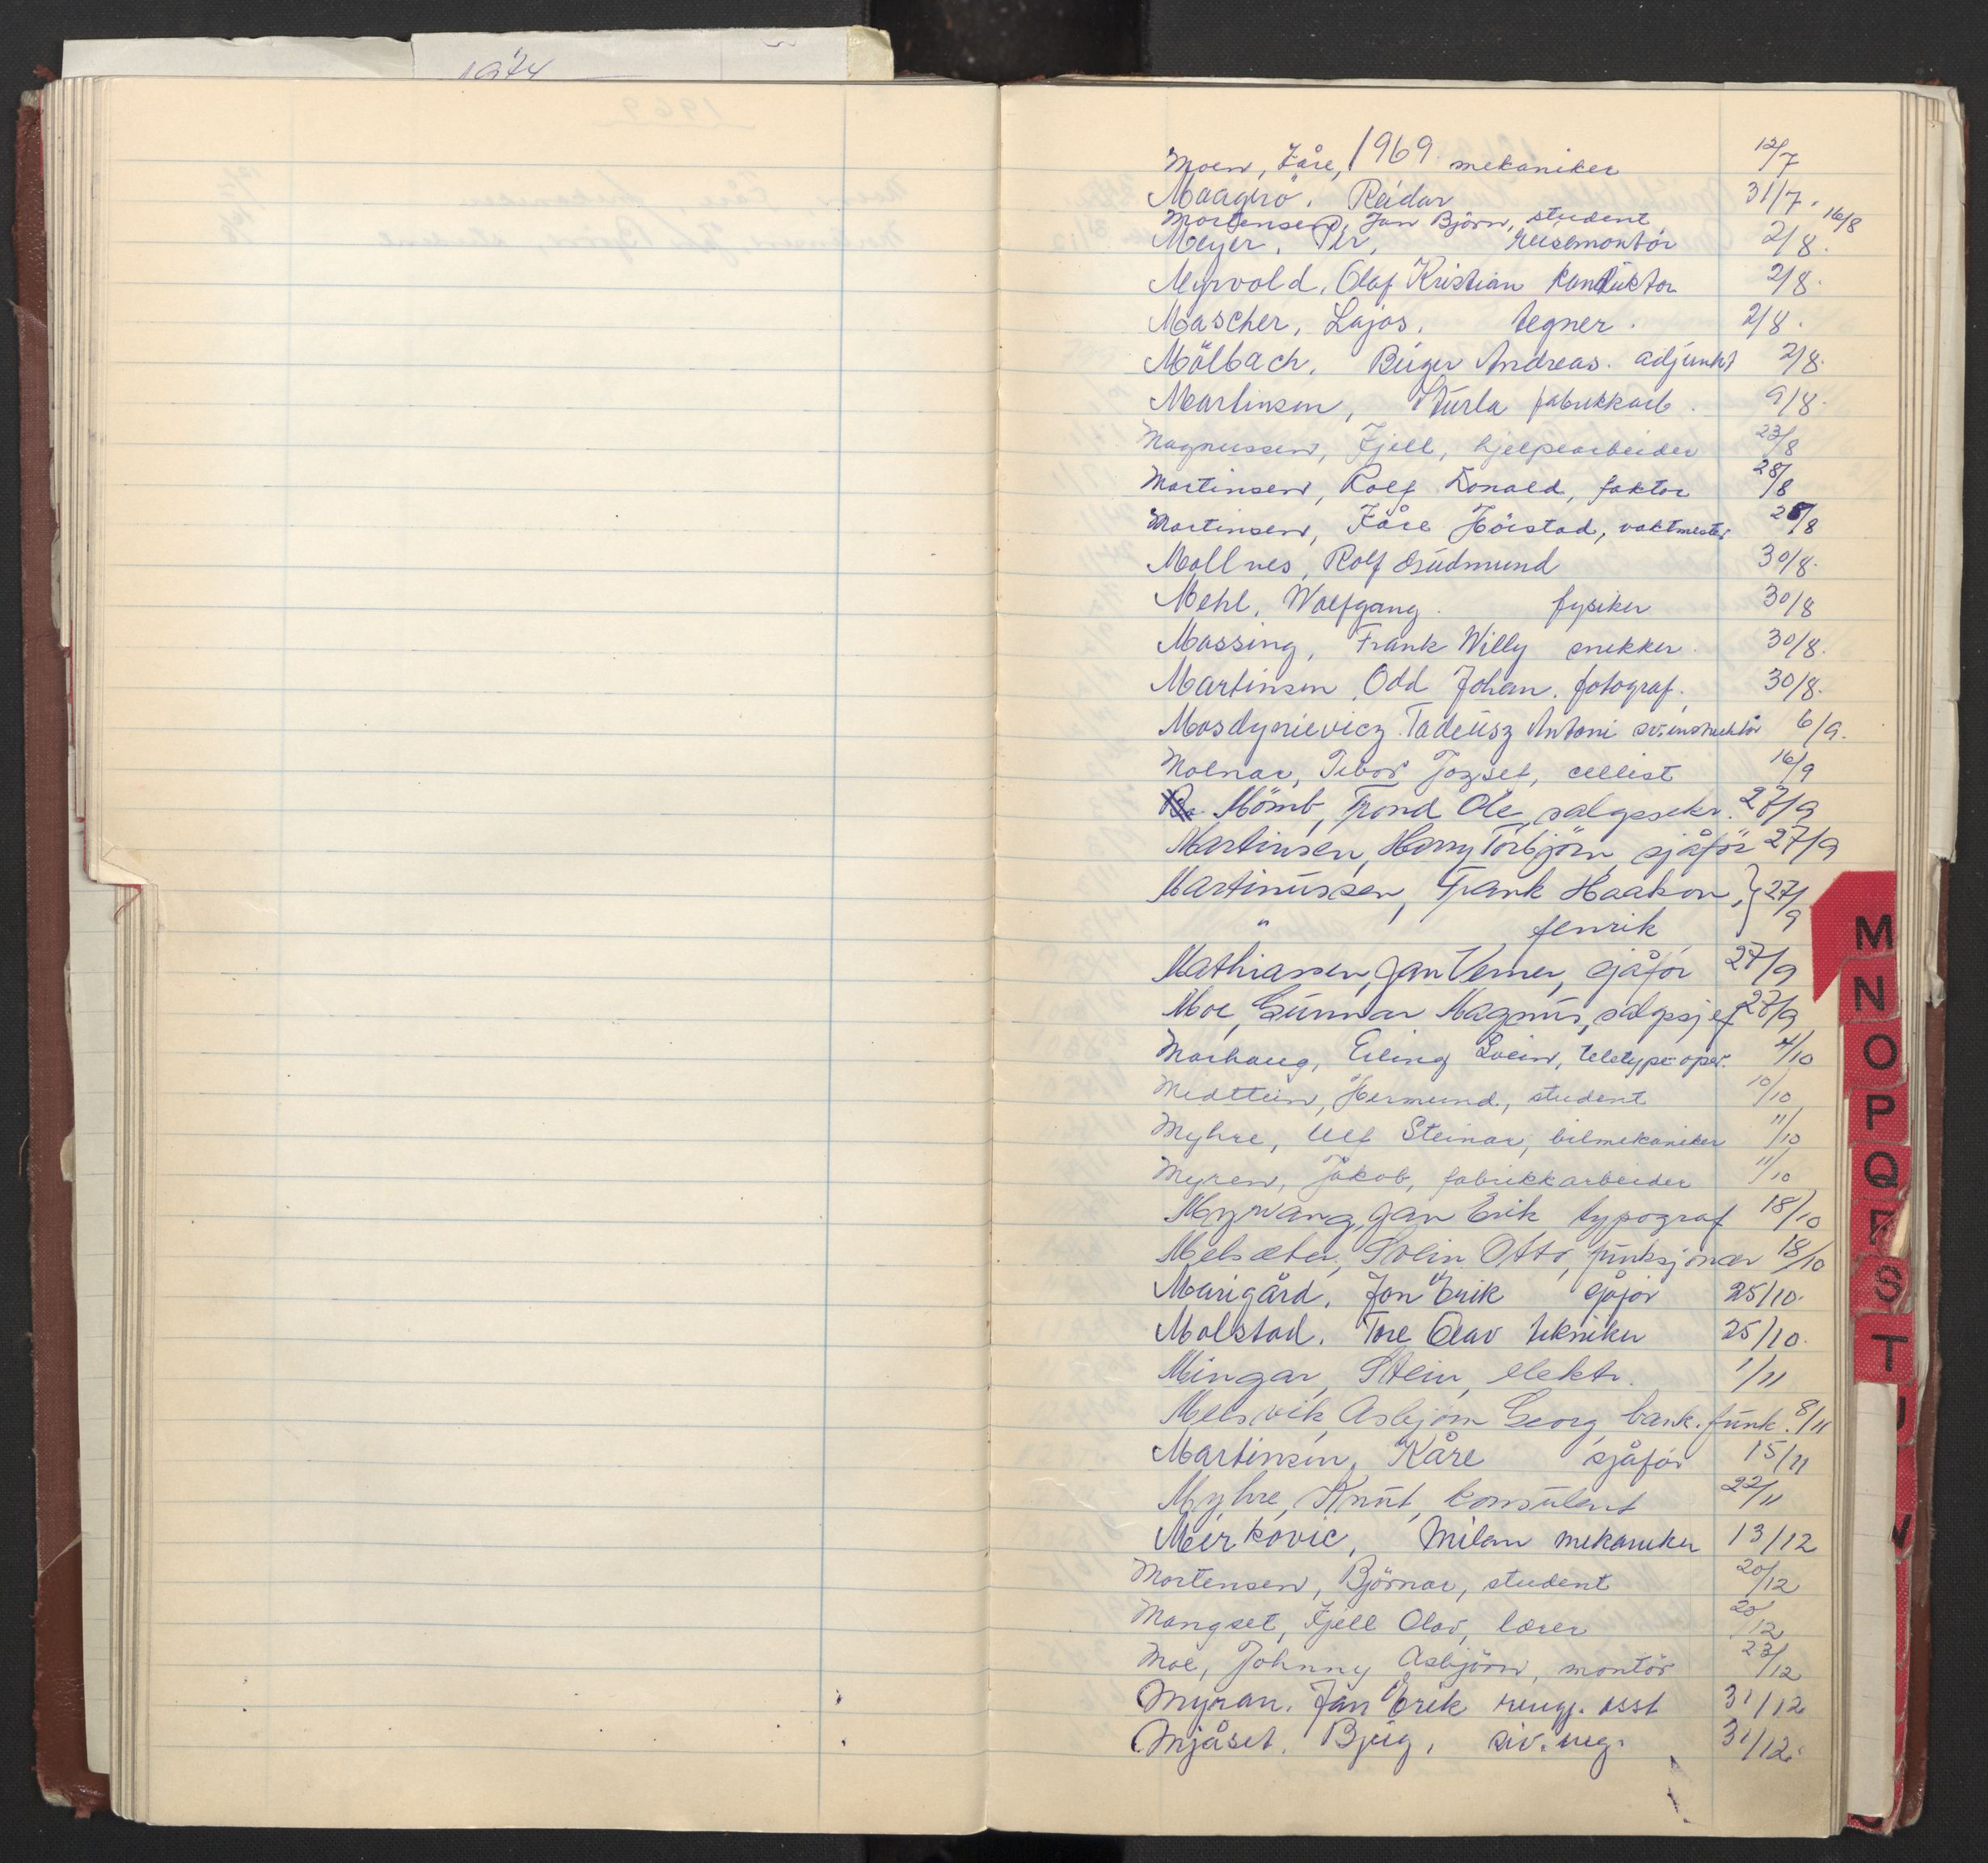 1974
1969
Moen, Kåre, mekaniker 12/7
Maagerö, Reidar 31/7.
Mortensen, Jan Björn, student 16/8
Meyer, Per, reisemontör 2/8.
Myrvold, Olaf Kristian konduktör 2/8.
Mascher, Lajos, tegner. 2/8.
Mölbach, Birger Andreas. adjunkt 2/8.
Martinsen, Sturla fabrikkarb. 9/8.
Magnussen, Kjell, hjelpearbeider 23/8
Martinsen, Rolf Donald, faktor 28/8
Martinsen, Kåre Hörstad, vaktmester 28/8
Mollnes, Rolf Gudmund 30/8.
Mehl, Wolfgang. fysiker 30/8
Massing, Frank Willy snekker. 30/8.
Martinsen, Odd Johan. fotograf. 30/8.
Tadeusz Antoni 6/9.
Molnar, Tibor Jozsef, cellist 16/9
Mömb, Trond Ole, salgssekr. 27/9
Martinsen, Harry Torbjörn, sjåför 27/9
Martinussen, Frank Haakon, } 27/9
" fenrik
Mathiassen, Jan Verner, sjåför 27/9
Moe, Gunnar Magnus, salgssjef 27/9
Morhaug, Erling Svein, teletype-oper. 4/10
Medttun, Hermund, student 10/10
Myhre, Ulf Steinar, bilmekaniker 11/10
Myren, Jakob, fabrikkarbeider 11/10
Myrvang, Jan Erik typograf 18/10
Melsæter, Svein Otto, funksjonær 18/10
Marigård, Jon Erik sjåför 25/10.
Molstad, Tore Olav tekniker 25/10.
Mingar, Stein, elektr. 1/11
Melsvik, Asbjörn Georg, bank.funk. 8/11
Martinsen, Kåre sjåför 15/11
Myhre, Knut, konsulent 22/11
Mirkovic, Milan mekaniker 13/12
Mortensen, Björnar, student 20/12
Mangset, Kjell Olav, lærer 20/12
Moe, Johnny Asbjörn, montör 23/12
Myran, Jan Erik asst 31/12
Mjåset, siv.ing. 31/12.
M
N
O
P
Q
R
S
T